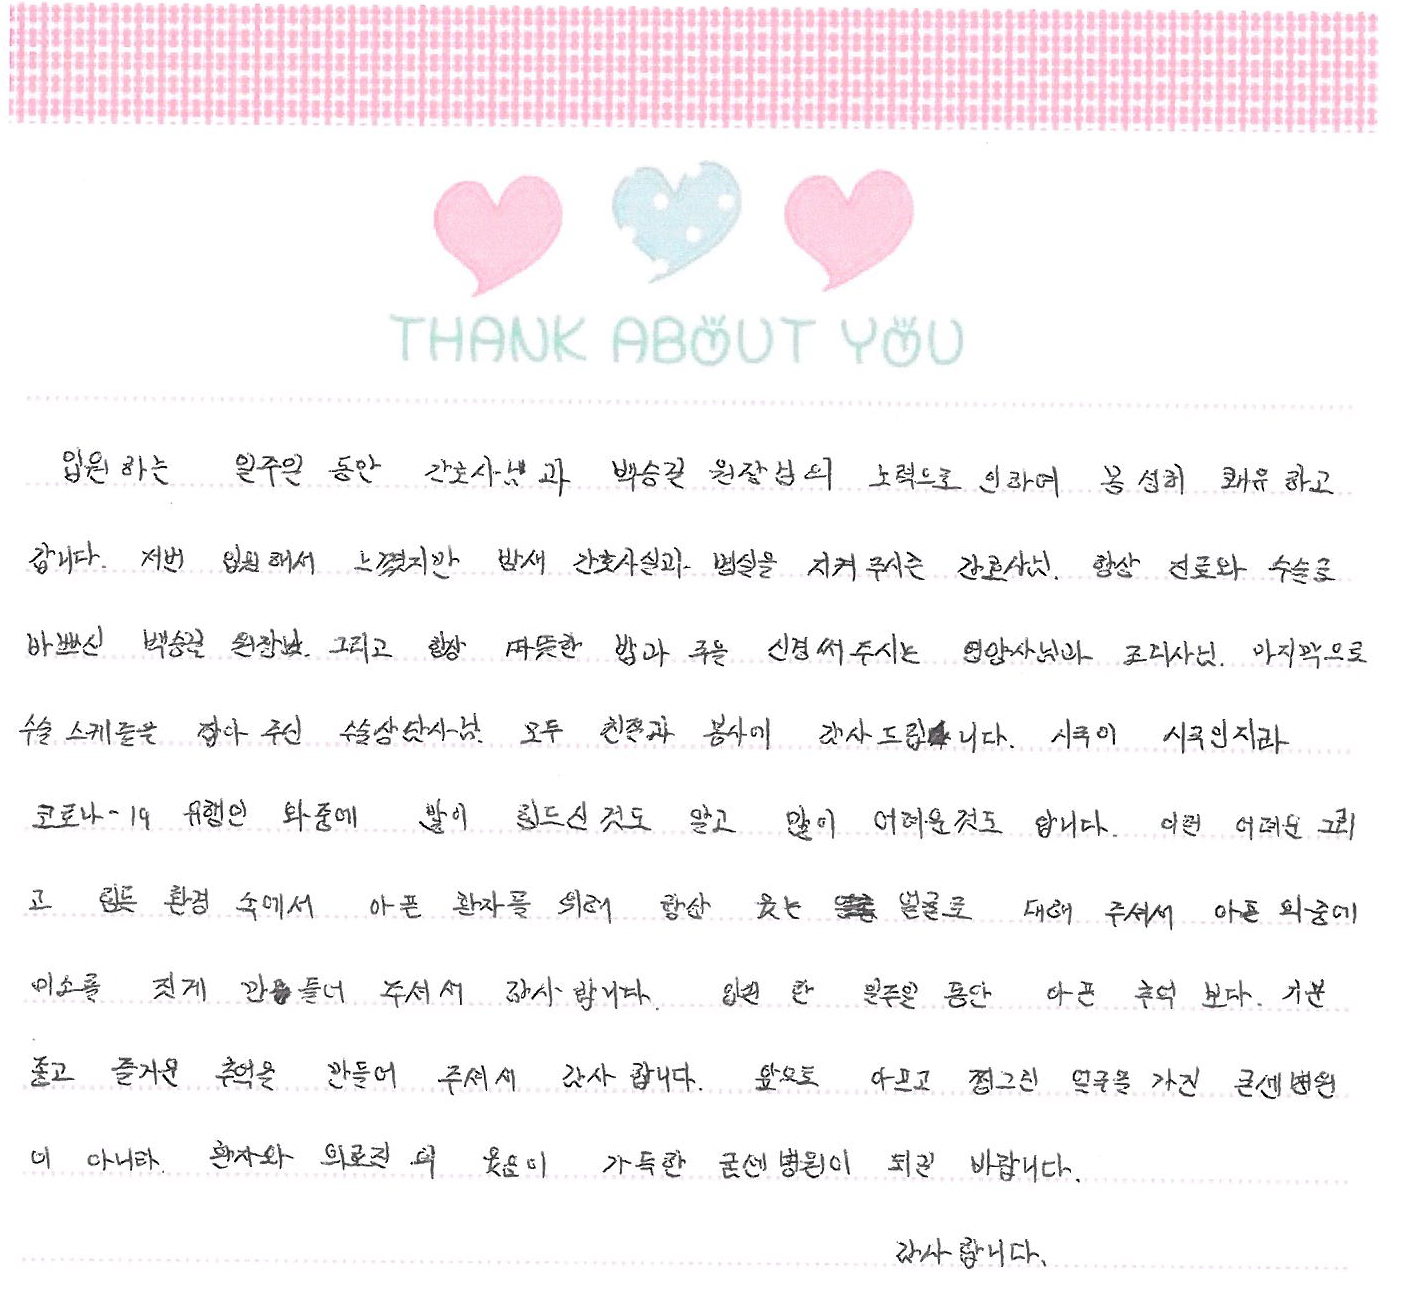 THANK ABOUT YOU
입원 하는 일주일 동안 간호사님과 백승길 원장님의 노력으로 인하여 몸 성히 쾌유 하고
갑니다. 저번 입원해서 느꼈지만 밤새 간호사실과 병실을 지켜 주시는 간호사님. 항상 진료와 수술로
바쁘신 백승길 원장님. 그리고 항상 따뜻한 밥과 국을 신경써 주시는 영양사님과 조리사님. 마지막으로
수술 스케줄을 잡아 주신 수술상담사님 모두 친절과 봉사에 감사드립니다. 시국이 시국인지라
코로나-19 유행인 와중에 많이 힘드신 것도 알고 많이 어려운것도 압니다. 이런 어려운 그리
고 힘든 환경 속에서 아픈 환자를 위해 항상 웃는 얼굴로 대해 주셔서 아픈 와중에
미소를 짓게 만들어 주셔서 감사 합니다. 입원 한 일주일 동안 아픈 추억 보다. 기분
좋고 즐거운 추억을 만들어 주셔서 감사 합니다. 앞으로 아프고 찡그린 얼굴을 가진 굳센병원
이 아니라. 환자와 의료진의 웃음이 가득한 굳센병원이 되길 바랍니다.
감사 합니다.